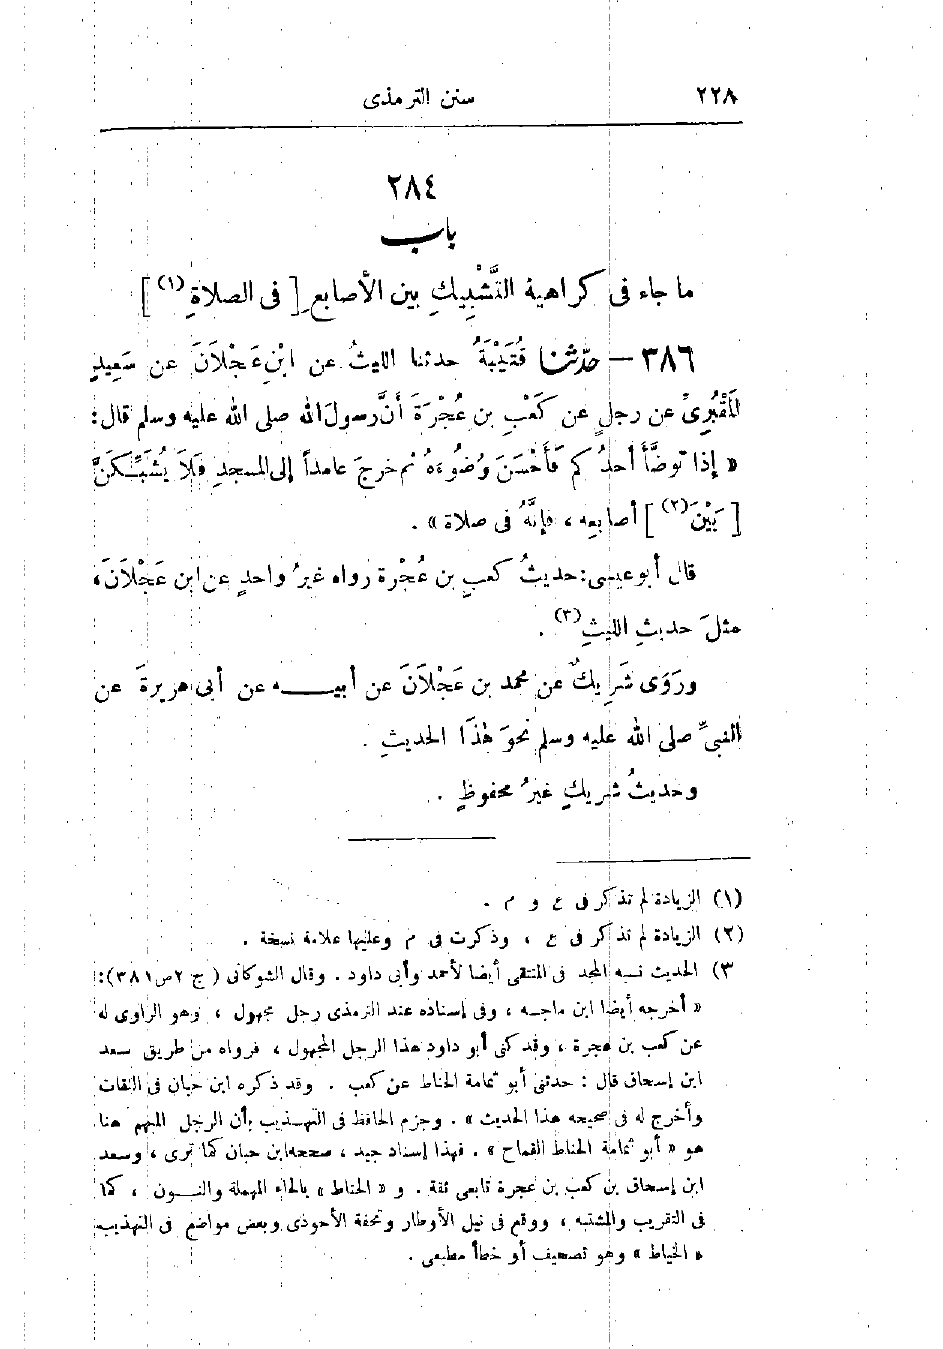 ٢٢٨
سنن الترمذى
٢٨٤
باب
ما جاء فى كراهية التَّشْبِيكِ بين الأصابع [ فى الصلاةِ (١) ]
٣٨٦ — حدّثنا قُتَيْبَةُ حدثنا الليثُ عن ابْنِ عَجْلاَنَ عن سَعِيدٍ
المَقْبُرِىِّ عن رجلٍ عن كَعْبِ بن عُجْرَةَ أَنَّ رسولَ الله صلى الله عليه وسلم قال :
« إذا توضَّأَ أحدُكم فَأَحْسَنَ وُضُوءَهُ ثم خرجَ عامداً إلى المسجدِ فَلاَ يُشَبِّكَنَّ
[ بَيْنَ (٢) ] أصابعِه ، فإنَّهُ فى صلاة » .
قال أبو عيسى : حديثُ كعبِ بن عُجْرة رواه غيرُ واحدٍ عن ابن عَجْلاَنَ ،
مثلَ حديثِ الليثِ (٣) .
ورَوَى شَرِيكٌ عن محمد بن عَجْلاَنَ عن أبيـــه عن أبى هريرةَ عن
النبىِّ صلى الله عليه وسلم نحوَ هٰذَا الحديثِ .
وحديثُ شريكٍ غيرُ محفوظٍ .
(١) الزيادة لم تذكر فى ع و م .
(٢) الزيادة لم تذكر فى ع ، وذكرت فى م وعليها علامة نسخة .
٣) الحديث نسبه المجد فى المنتقى أيضا لأحمد وأبى داود . وقال الشوكانى ( ج ٢ ص ٣٨١ ) :
« أخرجه أيضا ابن ماجه ، وفى إسناده عند الترمذى رجل مجهول ، وهو الراوى له
عن كعب بن عجرة ، وقد كنى أبو داود هذا الرجل المجهول ، فرواه من طريق سعد
ابن إسحاق قال : حدثنى أبو ثمامة الحناط عن كعب . وقد ذكره ابن حبان فى الثقات
وأخرج له فى صحيحه هذا الحديث » . وجزم الحافظ فى التهـذيب بأن الرجل المبهم هنا
هو « أبو ثمامة الحناط القماح » . فهذا إسناد جيد ، صححه ابن حبان كما ترى ، وسعد
ابن إسحاق بن كعب بن عجرة تابعى ثقة . و « الحناط » بالحاء المهملة والنــون ، كما
فى التقريب والمشتبه ، ووقع فى نيل الأوطار وتحفة الأحوذى وبعض مواضع فى التهذيب
« الخياط » وهو تصحيف أو خطأ مطبعى .